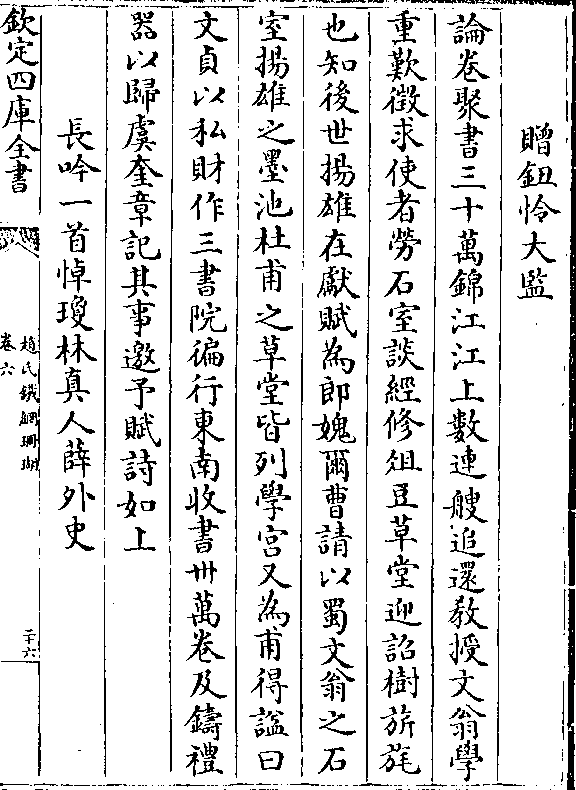 贈鈕怜大監
論卷聚書三十萬錦江江上數連艘追還教授文翁學
重歎徵求使者勞石室談經修俎豆草堂迎詔樹旂旄
也知後世揚雄在獻賦為郎媿爾曹請以蜀文翁之石
室揚雄之墨池杜甫之草堂皆列學宮又為甫得謚曰
文貞以私財作三書院徧行東南收書卅萬卷及鑄禮
器以歸虞奎章記其事邀予賦詩如上
長吟一首悼瓊林真人薛外史
欽定四庫全書
趙氏鐵網珊瑚
卷六
二十六